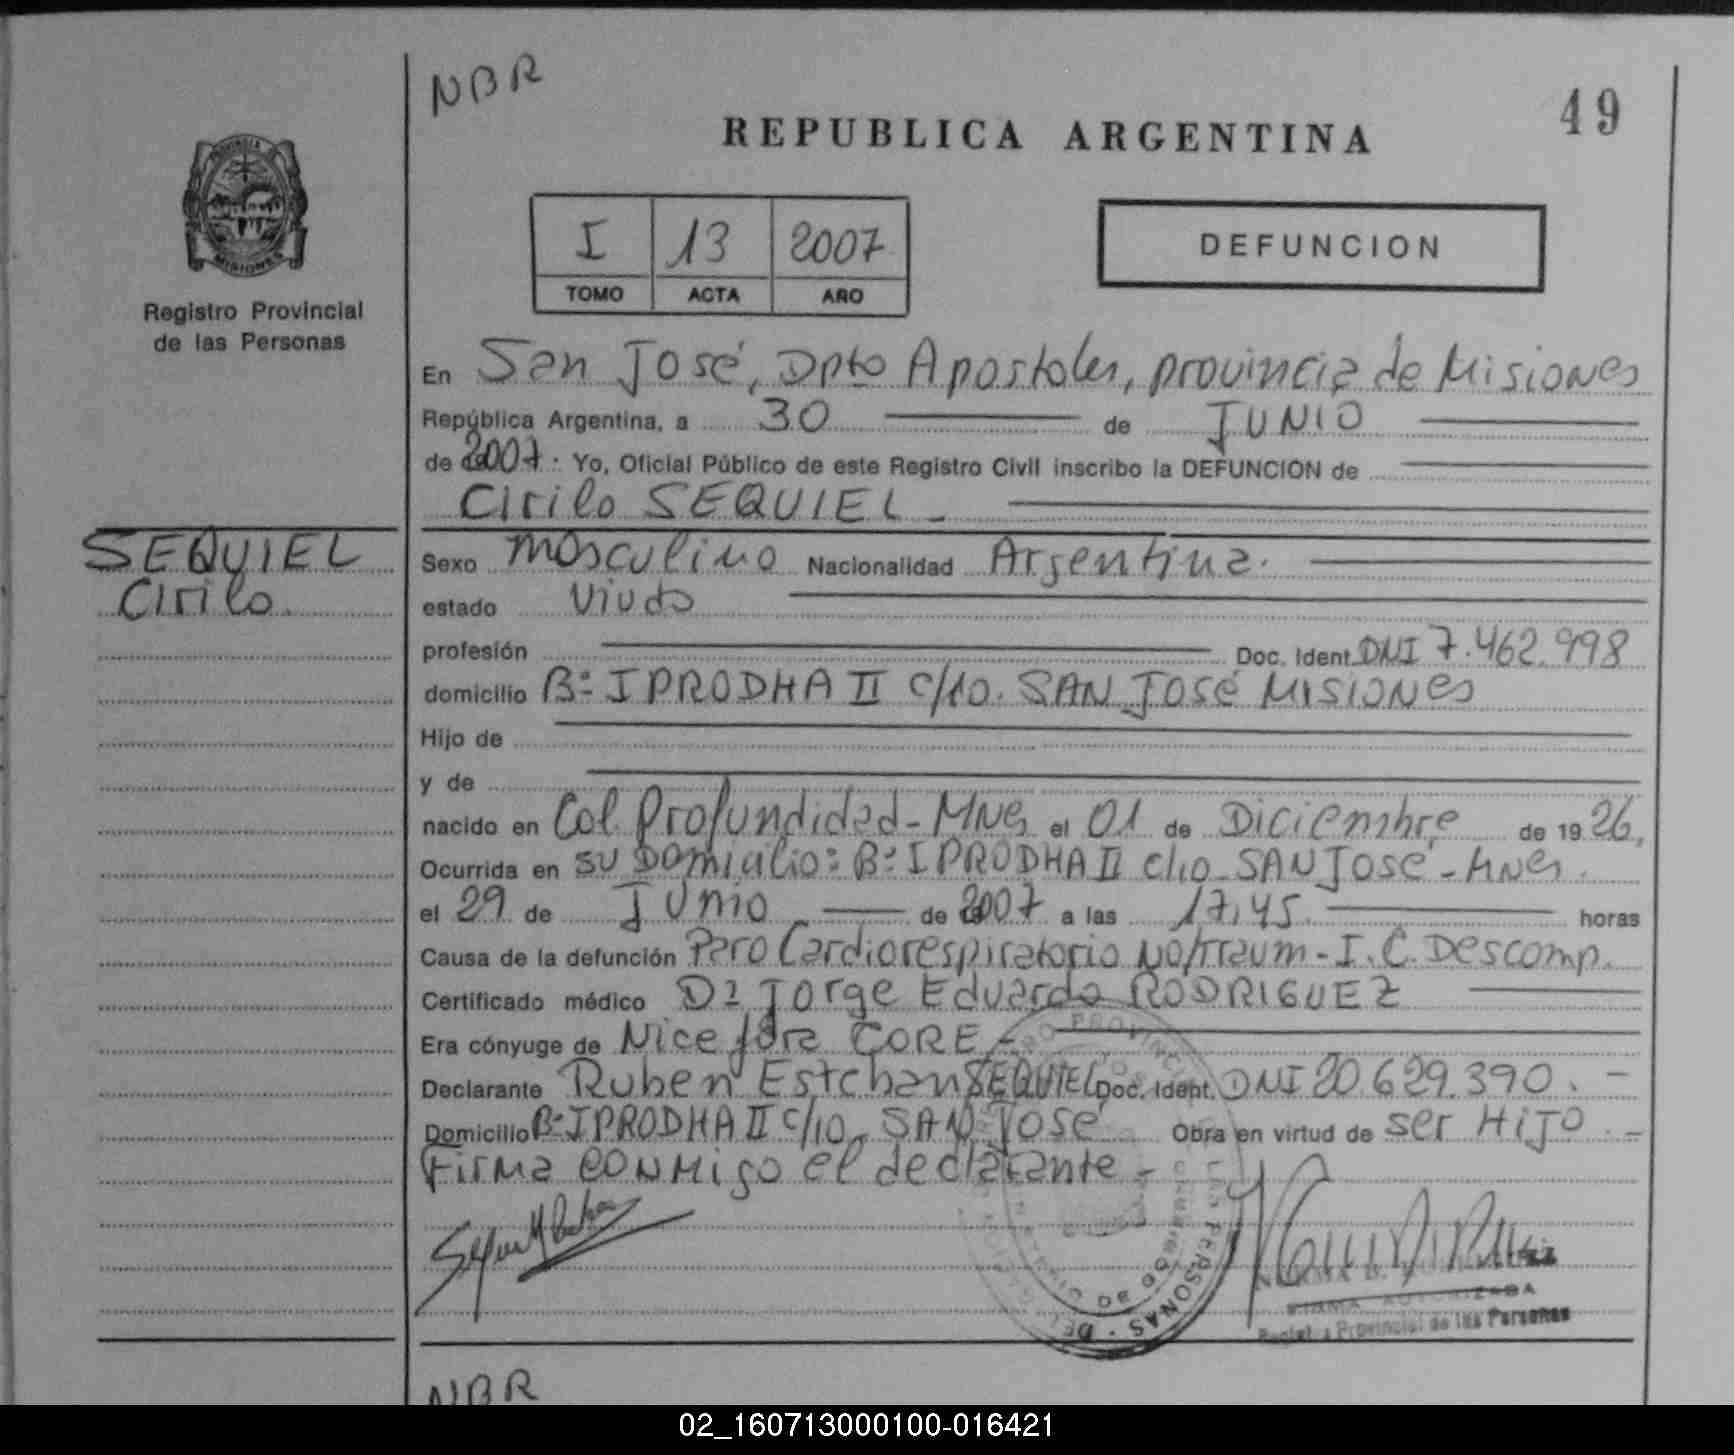 NBR
49
REPUBLICA ARGENTINA
PROVINCIA
MISIONES
I 13 2007
TOMO ACTA AÑO
DEFUNCION
Registro Provincial
de las Personas
En San José, Dpto Apostoles, provincia de Misiones
República Argentina, a 30 de JUNIO
de 2007. Yo, Oficial Público de este Registro Civil inscribo la DEFUNCION de
Cirilo SEQUIEL
SEQUIEL
Cirilo
Sexo masculino Nacionalidad Argentina.
estado Viudo
profesión Doc. Ident. DNI 7.462.998
domicilio Bº IPRODHA II c/10. SAN JOSÉ MISIONES
Hijo de
y de
nacido en Col. Profundidad - MNes el 01 de Diciembre de 1926,
Ocurrida en su Domicilio: Bº IPRODHA II c/10 - SAN JOSÉ - MNes.
el 29 de JUNIO de 2007 a las 17,45 horas
Causa de la defunción Paro Cardiorespiratorio No/Traum - I.C. Descomp.
Certificado médico Dr Jorge Eduardo RODRIGUEZ
Era cónyuge de Nicefora CORE
Declarante Ruben Esteban SEQUIEL Doc. Ident. DNI 20.629.390.
Domicilio Bº IPRODHA II c/10, SAN JOSÉ Obra en virtud de ser HIJO
Firma conmigo el declarante -
FIRMA AUTORIZADA
Registro Provincial de las Personas
NBR
02_160713000100-016421